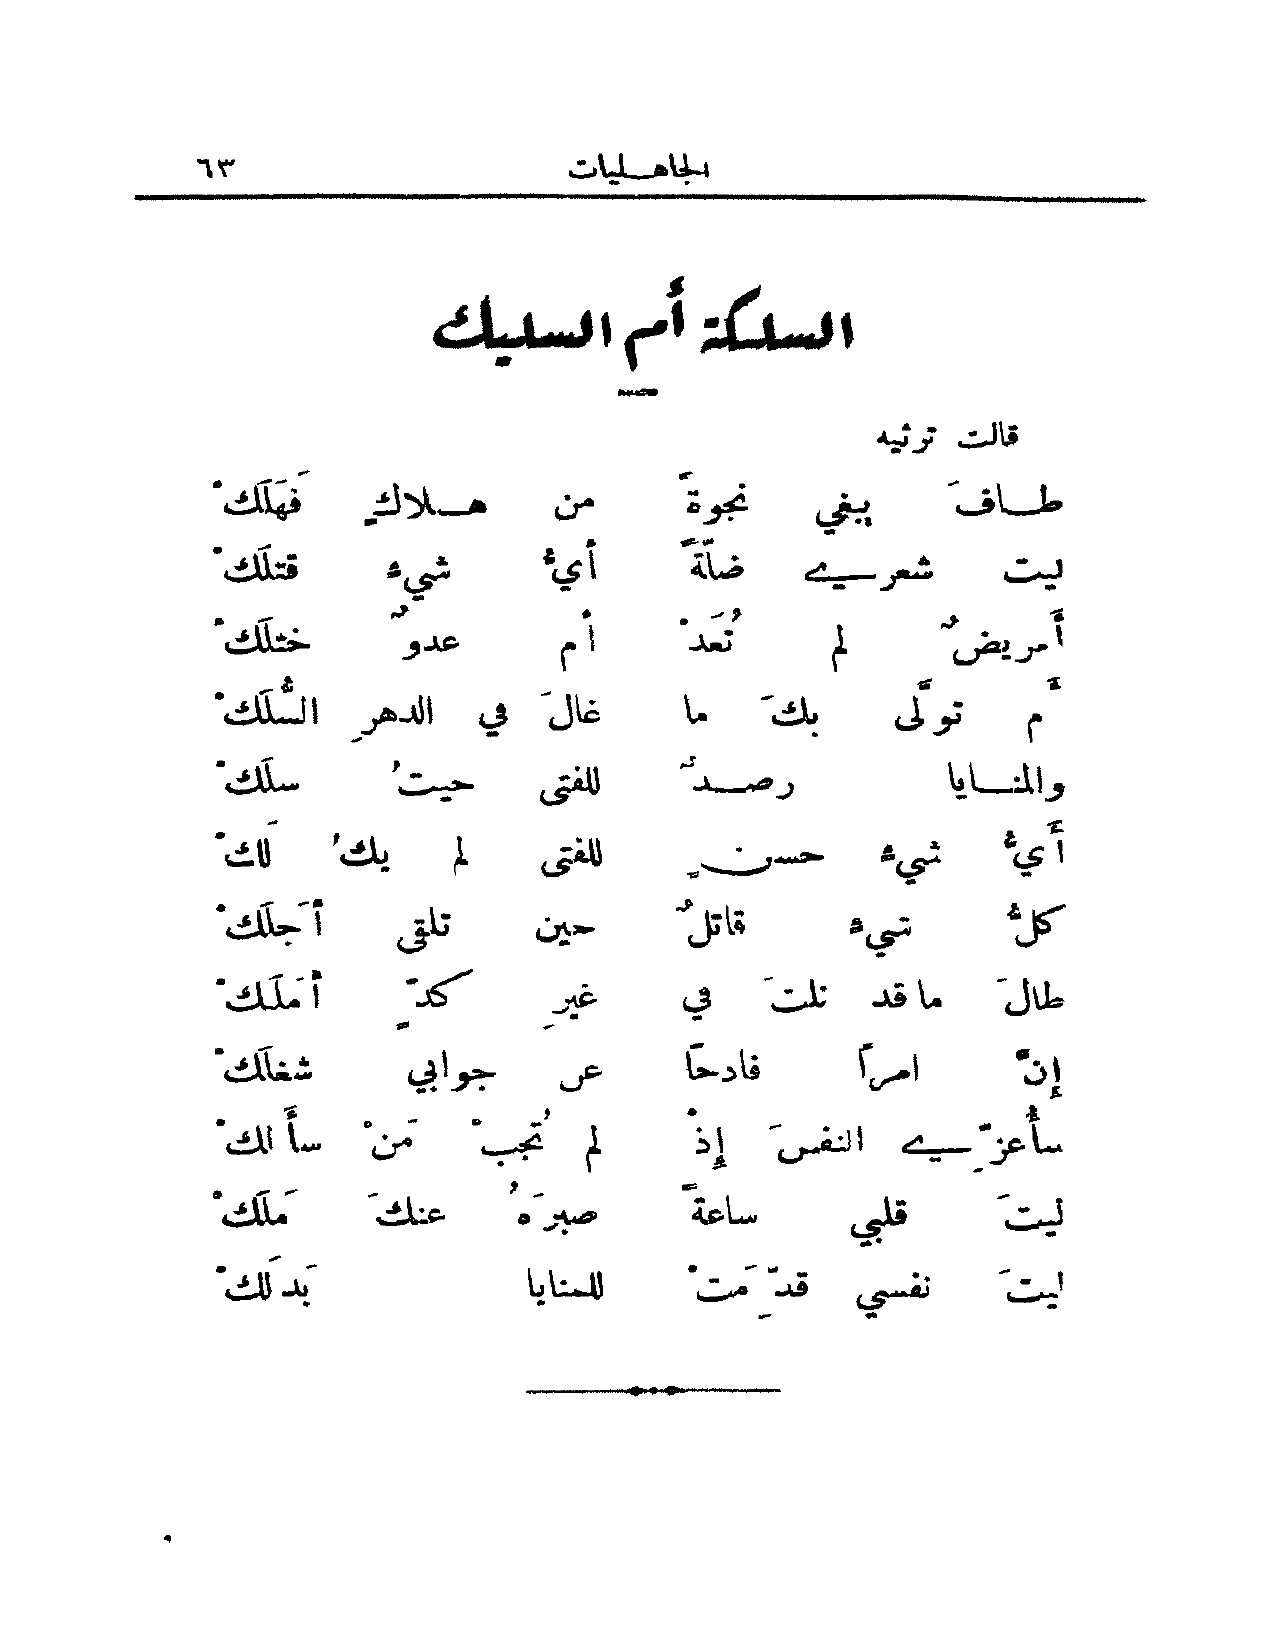 الجاهليات ٦٣
السلكة أم السليك
قالت ترثيه
طافَ يبغي نجوةً من هلاكٍ فَهَلَكْ
ليت شعري ضلّةً أيُّ شيءٍ قتلَكْ
أَمريضٌ لم تُعَدْ أم عدوٌ ختلَكْ
أَم تولَّى بكَ ما غالَ في الدهرِ السُّلَكْ
والمنايا رصدٌ للفتى حيتُ سلَكْ
أَيُّ شيءٍ حسنٍ للفتى لم يكُ لَكْ
كلُّ شيءٍ قاتلٌ حين تلقى أَجلَكْ
طالَ ما قد نلتَ في غيرِ كدٍّ أَمَلَكْ
إِنَّ امرأً فادحًا عن جوابي شغلَكْ
سأُعزِّي النفسَ إِذْ لم تُجَبْ مَنْ سأَلكْ
ليتَ قلبي ساعةً صبرَهُ عنكَ مَلَكْ
ليتَ نفسي قدِّمَتْ للمنايا بَدَلَكْ